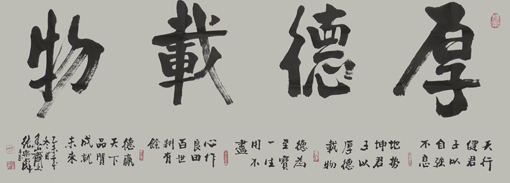 厚德載物
天行
健君
子以
自強
不息
地勢
坤君
子以
厚德
載物
德為
至寶
一生
用不
盡
心作
良田
百世
耕有
餘
德贏
天下
品質
成就
未來